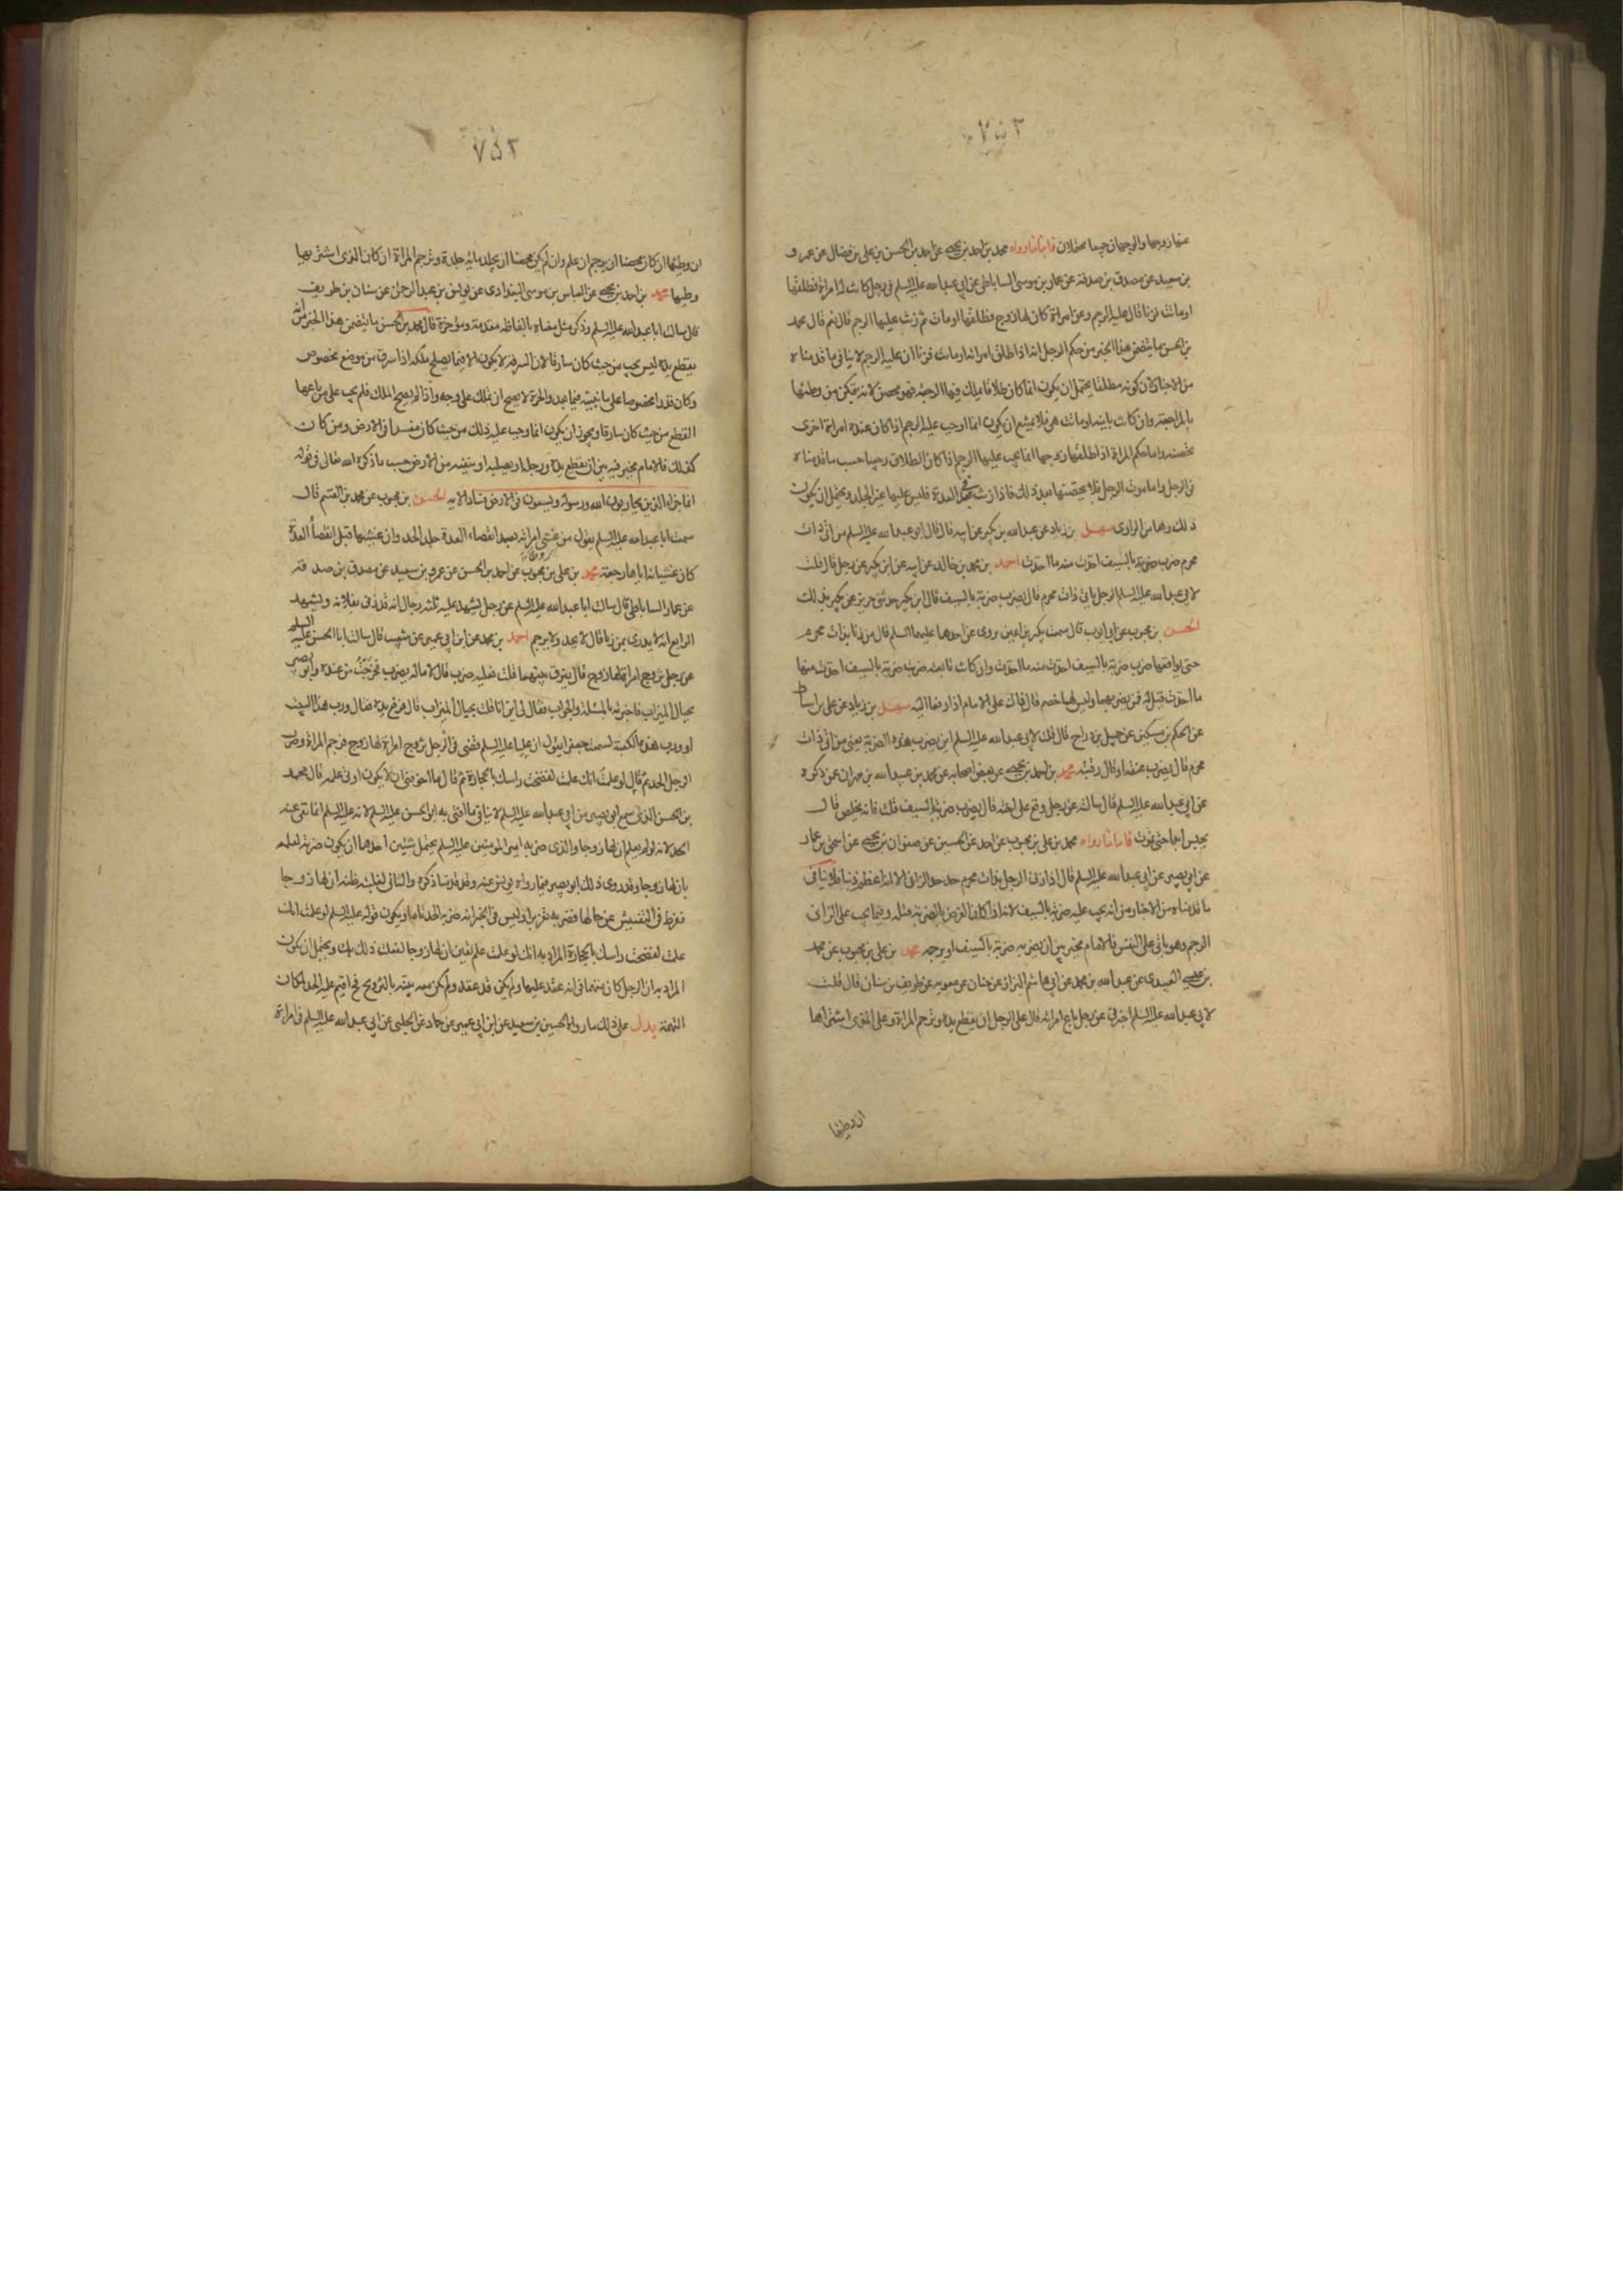 عنها زوجها والوجهان جميعا محتملان فاما ما رواه محمد بن احمد بن يحيى عن احمد بن الحسن بن علي بن فضال عن عمرو
بن سعيد عن مصدق بن صدقة عن عمار بن موسى الساباطي عن ابي عبد الله عليه السلم في رجل كانت له امراة فطلقها
او ماتت فزنا قال عليه الرجم وعن امراة كان لها زوج فطلقها او مات ثم زنت عليها الرجم قال نعم قال محمد
بن الحسن ما يتضمن هذا الخبر من حكم الرجل انه اذا طلق امراته او ماتت فزنا ان عليه الرجم لا ينافي ما قدمناه
من الاخبار لان كونه مطلقا يحتمل ان يكون انما كان طلاقا يملك فيها الرجعة فهو محصن لانه يتمكن من وطئها
بالمراجعة وان كانت باينة او ماتت هي فلا يمتنع ان يكون انما اوجب عليه الرجم اذا كان عنده امراة اخرى
تحصنه واما حكم المراة اذا طلقها زوجها انما يجب عليها الرجم اذا كان الطلاق رجعيا حسب ما قدمناه
في الرجل واما موت الرجل فلا يحصنها بعد ذلك فاذا زنت في العدة فليس عليها غير الجلد ويحتمل ان يكون
ذلك وهما من الراوي سهل بن زياد عن عبد الله بن بكير عن ابيه قال قال ابو عبد الله عليه السلم من اتى ذات
محرم ضرب ضربة بالسيف اخذت منه ما اخذت احمد بن محمد بن خالد عن ابيه عن ابن بكير عن رجل قال قلت
لابي عبد الله عليه السلم الرجل ياتي ذات محرم قال يضرب ضربة بالسيف قال ابن بكير حدثني حريز عن بكير بذلك
الحسن بن محبوب عن ابي ايوب قال سمعت بكير بن اعين يروى عن احدهما عليهما السلم قال من زنا بذات محرم
حتى يواقعها ضرب ضربة بالسيف اخذت منه ما اخذت وان كانت تابعته ضربت ضربة بالسيف اخذت منها
ما اخذت قيل له فمن يضربهما وليس لهما خصم قال ذاك على الامام اذا رفعا اليه سهل بن زياد عن علي بن اسباط
عن الحكم بن مسكين عن جميل بن دراج قال قلت لابي عبد الله عليه السلم اين يضرب هذه الضربة يعني من اتى ذات
محرم قال يضرب عنقه او قال رقبته محمد بن احمد بن يحيى عن بعض اصحابه عن محمد بن عبد الله بن مهران عن ذكره
عن ابي عبد الله عليه السلم قال سالته عن رجل وقع على اخته قال يضرب ضربة بالسيف قلت فانه يخلص قال
يحبس ابدا حتى يموت فاما ما رواه محمد بن علي بن محبوب عن احمد عن الحسين عن صفوان بن يحيى عن اسحق بن عمار
عن ابي بصير عن ابي عبد الله عليه السلم قال اذا زنى الرجل بذات محرم حد حد الزاني الا انه اعظم ذنبا فلا ينافي
ما قدمناه من الاخبار من انه يجب عليه ضربة بالسيف لانه اذا كان الغرض بالضربة قتله وفيما يجب على الزاني
الرجم وهو ياتي على النفس فالامام مخير بين ان يضربه ضربة بالسيف او يرجمه محمد بن علي بن محبوب عن محمد
بن عيسى العبيدي عن عبد الله بن محمد عن ابي هاشم البزاز عن حنان عن معوية عن طريف بن سنان قال قلت
لابي عبد الله عليه السلم اخبرني عن رجل باع امراته قال على الرجل ان يقطع يده وترجم المراة وعلى الذي اشتراها
ان وطئها
ان وطئها ان كان محصنا ان يرجم ان علم وان لم يكن محصنا ان يجلد مائة جلدة وترجم المراة ان كان الذي اشتريها
وطيها محمد بن احمد بن يحيى عن العباس بن موسى البغدادي عن يونس بن عبد الرحمن عن سنان بن طريف
قال سالت ابا عبد الله عليه السلم وذكر مثل معناه بالفاظه مقدمة ومؤخرة قال محمد بن الحسن ما يتضمن هذا الخبر من انه
يقطع يده ليس يجب من حيث كان سارقا لان السرقة لا يكون الا فيما يصلح ملكه اذا سرق من موضع مخصوص
وكان قدرا مخصوصا على ما نبينه فيما بعد والحرة لا يصح ان تملك على وجه واذا لم يصح الملك فلم يجب على من باعها
القطع من حيث كان سارقا ويجوز ان يكون انما وجب عليه ذلك من حيث كان مفسدا في الارض ومن كان
كذلك فالامام مخير فيه بين ان يقطع يده ورجله او يصلبه او ينفيه من الارض حسب ما ذكره الله تعالى في قوله
انما جزاء الذين يحاربون الله ورسوله ويسعون في الارض فسادا الاية الحسن بن محبوب عن محمد بن القسم قال
سمعت ابا عبد الله عليه السلم يقول من غشى امراته بعد انقضاء العدة جلد الحد وان غشيها قبل انقضاء العدة
كان غشيانه اياها رجعة محمد بن علي بن محبوب عن احمد بن الحسن عن عمرو بن سعيد عن مصدق بن صدقة
عن عمار الساباطي قال سالت ابا عبد الله عليه السلم عن رجل يشهد عليه ثلثة رجال انه قد زنى بفلانة ويشهد
الرابع انه لا يدرى بمن زنا قال لا يحد ولا يرجم احمد بن محمد عن ابن ابي عمير عن شعيب قال سالت ابا الحسن عليه السلم
عن رجل تزوج امراة لها زوج قال يفرق بينهما قلت فعليه ضرب قال لا ماله يضرب فخرجت من عنده وابو بصير
بحيال الميزاب فاخبرته بالمسئلة والجواب فقال لي اين انا قلت بحيال الميزاب قال فرفع يده فقال ورب هذا البيت
او ورب هذه الكعبة لسمعت جعفرا يقول ان عليا عليه السلم قضى في الرجل تزوج امراة لها زوج فرجم المراة وضرب
الرجل الحد ثم قال لو علمت انك علمت لفضخت راسك بالحجارة ثم قال ما اخوفني ان لا يكون اوتى علمه قال محمد
بن الحسن الذي سمع ابو بصير من ابي عبد الله عليه السلم لا ينافي ما افتى به ابو الحسن عليه السلم لانه عليه السلم انما نفى عنه
الحد لانه لم يعلم ان لها زوجا والذي ضربه امير المومنين عليه السلم يحتمل شيئين احدهما ان يكون ضربه لعلمه
بان لها زوجا وقد روى ذلك ابو بصير فيما رواه يونس عنه وقد قدمنا ذكره والثاني لغلبة ظنه ان لها زوجا
ففرط في التفتيش عن حالها فضربه تعزيرا وليس في الخبر انه ضربه الحد تاما ويكون قوله عليه السلم لو علمت انك
علمت لفضخت راسك بالحجارة المراد به انك لو علمت علم يقين ان لها زوجا لفعلت ذلك بك ويحتمل ان يكون
المراد به ان الرجل كان متهما في انه عقد عليها ولم يكن قد عقد ولم يكن معه بينة بالتزويج فح اقيم عليه الحد لمكان
التهمة يدل على ذلك ما رواه الحسين بن سعيد عن ابن ابي عمير عن حماد عن الحلبي عن ابي عبد الله عليه السلم في امراة